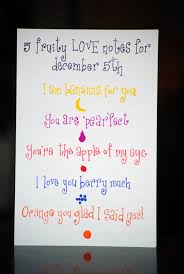 5 fruity LOVE notes for
december 5th
I am bananas for you
You are pearfect
You're the apple of my eye
I love you berry much
Orange you glad I said yes!